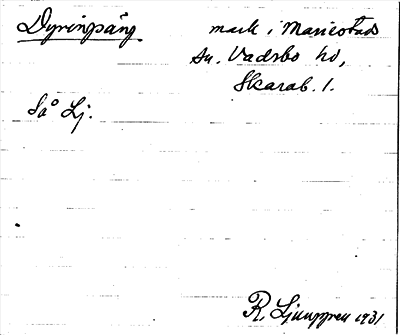 Dyrinpäng. mark i Mariestads
sn. Vadsbo hd,
Skarab. l.
Så Lj.
R. Ljunggren 1931